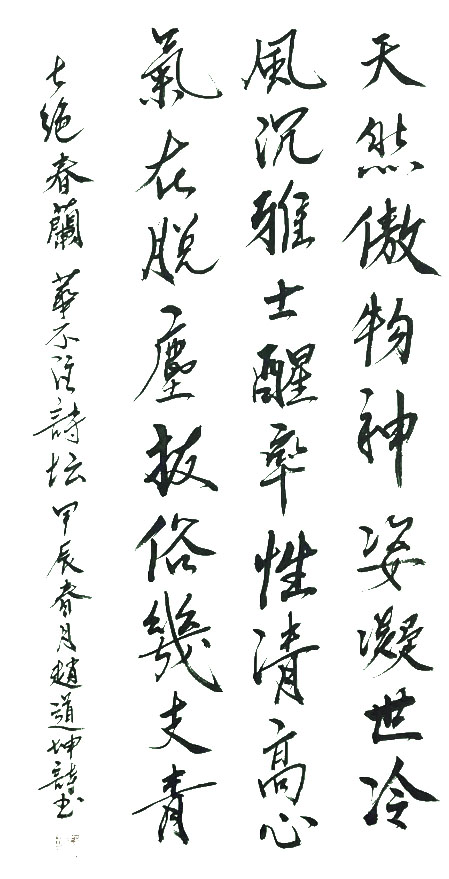 天然傲物神姿凝世冷
風沉雅士醒率性清高心
氣在脱塵拔俗幾支青
七绝春蘭 華不注詩坛 甲辰春月趙道坤詩书